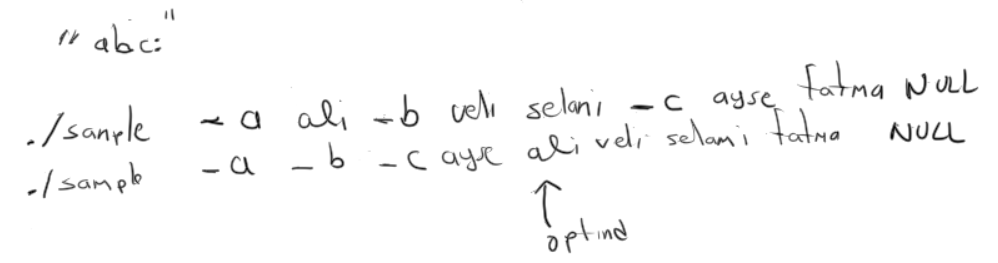 "abc:"
./sample -a ali -b veli selami -c ayse fatma NULL
./sample -a -b -c ayse ali veli selami fatma NULL
optind